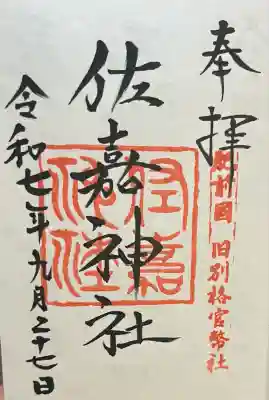 奉拝
肥前国 旧別格官幣社
佐嘉神社
佐嘉神社
令和七年九月二十七日